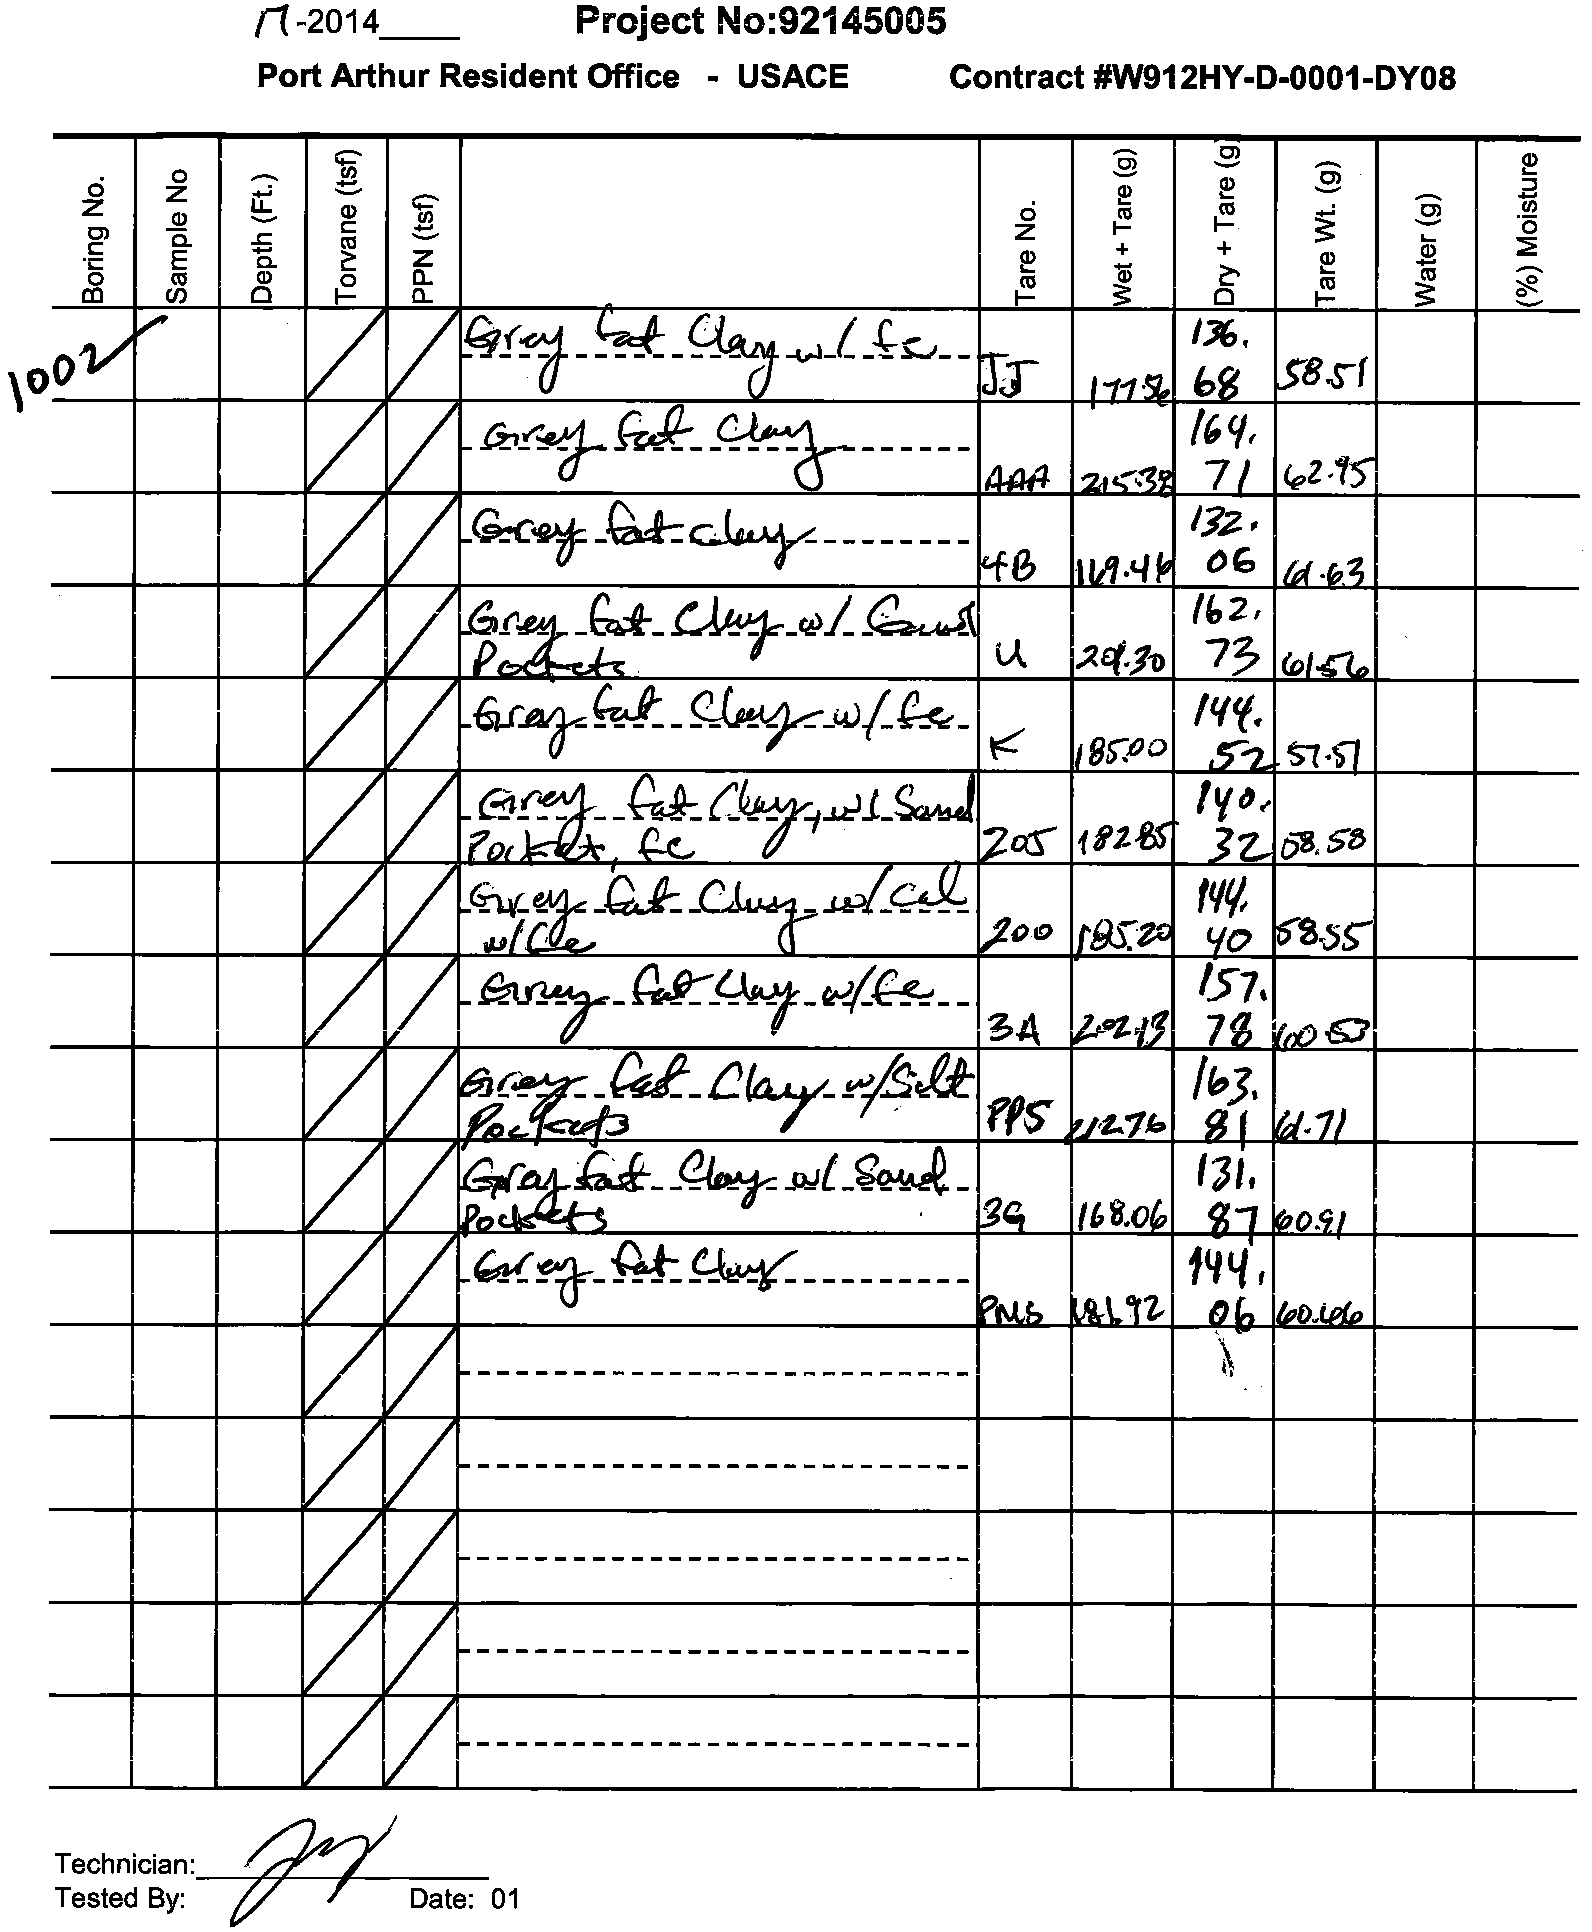 17-2014____ Project No:92145005
Port Arthur Resident Office - USACE Contract #W912HY-D-0001-DY08
Boring No. Sample No Depth (Ft.) Torvane (tsf) PPN (tsf) Tare No. Wet + Tare (g) Dry + Tare (g) Tare Wt. (g) Water (g) (%) Moisture
1002
Grey fat Clay w/ fe 136.
JJ 177.56 68 58.51
Grey fat Clay 164.
AAA 215.38 71 62.95
Grey fat clay 132.
4B 169.46 06 61.63
Grey fat Clay w/ Sand 162.
Pockets U 73 61.56
Grey fat Clay w/ fe 144.
K 185.00 52 57.51
Grey fat Clay, w/ Sand 140.
Pocket, fe 205 182.85 32 58.58
Grey fat Clay w/ Cal 144.
w/ fe 200 185.20 40 58.55
Grey fat Clay w/ fe 157.
3A 202.13 78
Grey fat Clay w/ Silt 163.
Pockets PP5 212.76 81 61.71
Grey fat Clay w/ Sand 131.
Pockets 3G 168.06 87 60.91
Grey fat Clay 144.
PMS 06
Technician:
Tested By: Date: 01